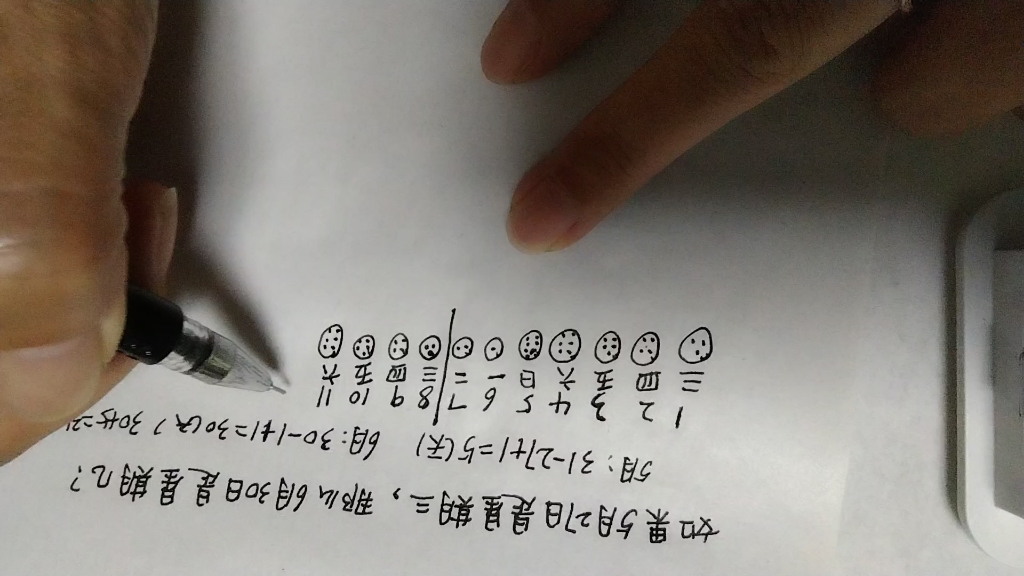 如果5月27日是星期三，那么6月30日是星期几？
5月：31-27+1=5(天) 6月：30-1+1=30(天) 30+5=3
1 2 3 4 5 6 7 8 9 10 11
三 四 五 六 日 一 二 三 四 五 六